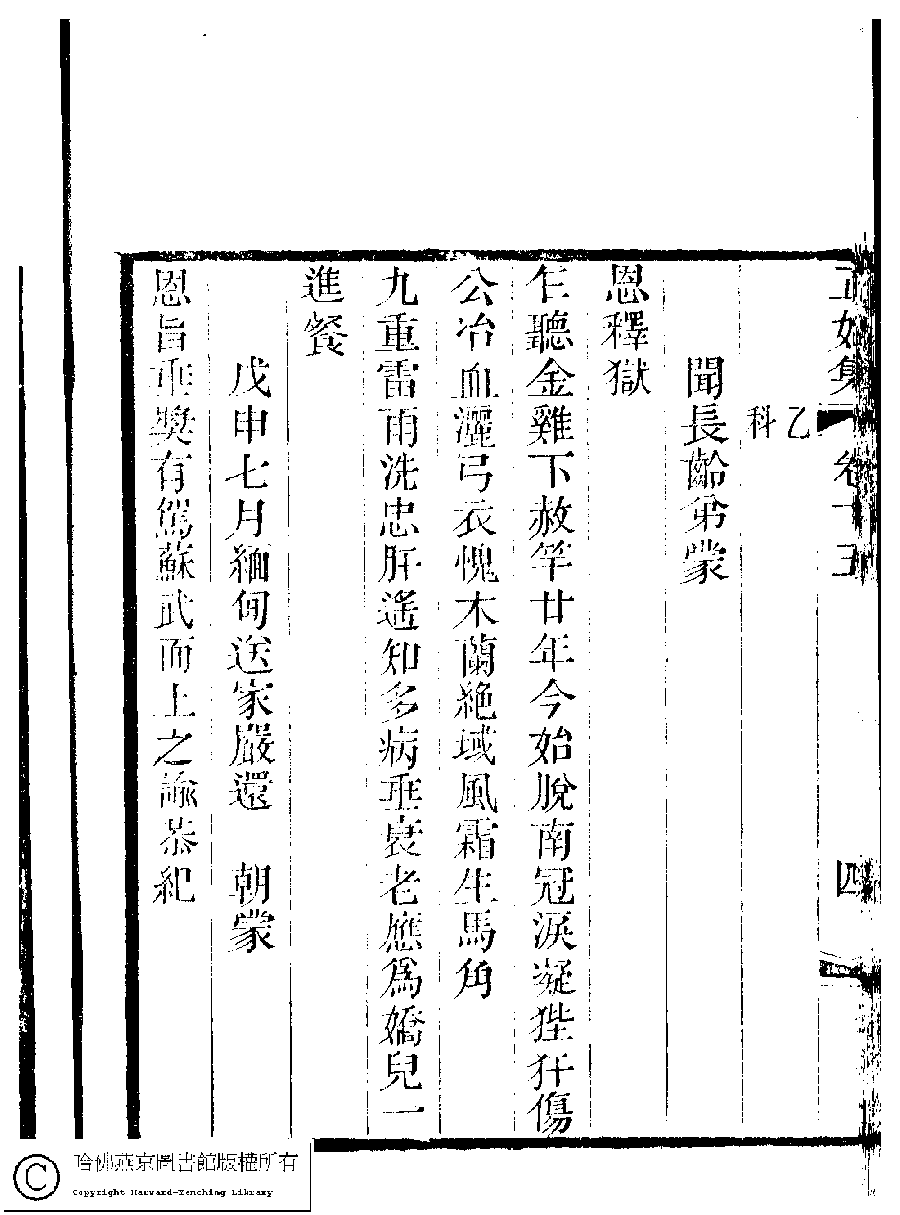 正始集 卷十五 四
乙
科
聞長齡弟蒙
恩釋獄
乍聽金雞下赦竿廿年今始脫南冠淚凝狴犴傷
公冶血灑弓衣愧木蘭絕域風霜生馬角
九重雷雨洗忠肝遙知多病垂衰老應爲嬌兒一
進餐
戊申七月緬甸送家嚴還 朝蒙
恩旨垂奬有駕蘇武而上之諭恭紀
哈佛燕京圖書館版權所有
Copyright Harvard-Yenching Library